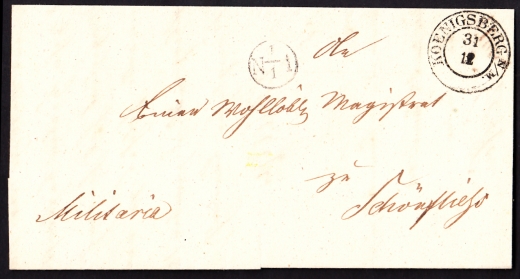 KOENIGSBERG N/M.
31
12
N 1/1 1
An
Einen Wohllöbl. Magistrat
zu
Schönfließ
Militaria